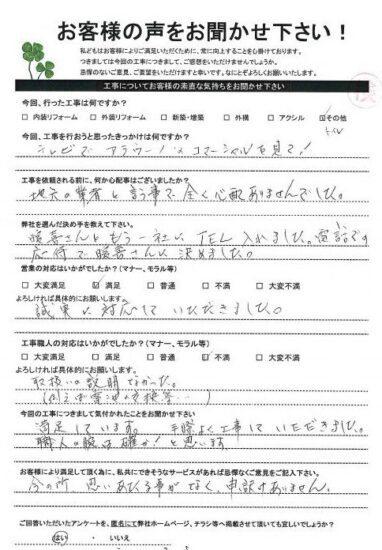 お客様の声をお聞かせ下さい！
私どもはお客様によりご満足いただくために、常に向上することを心掛けております。
つきましては今回の工事につきまして、ご感想をいただけませんでしょうか。
忌憚のないご意見、ご要望をいただけますと幸いです。なにとぞよろしくお願いいたします。
工事についてお客様の素直な気持ちをお聞かせ下さい
今回、行った工事は何ですか？
□ 内装リフォーム □ 外装リフォーム □ 新築・増築 □ 外構 □ アクシル ☑ その他
トイレ
今回、工事を行おうと思ったきっかけは何ですか？
テレビで アラウーノの コマーシャルを見て！
工事を依頼される前に、何か心配事はございましたか？
地元の業者と言う事で全く心配ありませんでした。
弊社を選んだ決め手を教えて下さい。
さんともう一社に TEL 入れました。電話での
応待で さんに決めました。
営業の対応はいかがでしたか？(マナー、モラル等)
□ 大変満足 ☑ 満足 □ 普通 □ 不満 □ 大変不満
よろしければ具体的にお願いします。
誠実に対応して いただきました。
工事職人の対応はいかがでしたか？(マナー、モラル等)
□ 大変満足 □ 満足 □ 普通 ☑ 不満 □ 大変不満
よろしければ具体的にお願いします。
取扱いの説明 なかった。
(例えば電池の交換等…)
今回の工事につきまして気付かれたことをお聞かせ下さい
満足しています。 手際よく工事していただきました。
職人の腕は確か！と思います
お客様により満足して頂く為に、私共にできそうなサービスがあれば忌憚なくご意見をご記入下さい。
今の所、思いあたる事がなく、申訳ありません。
ご回答いただいたアンケートを、匿名にて弊社ホームページ、チラシ等へ掲載させて頂いても宜しいでしょうか？
はい ・ いいえ